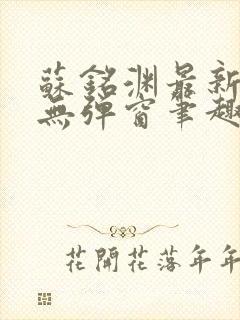 蘇銘淵最新
無彈窗筆趣
花開花落年年